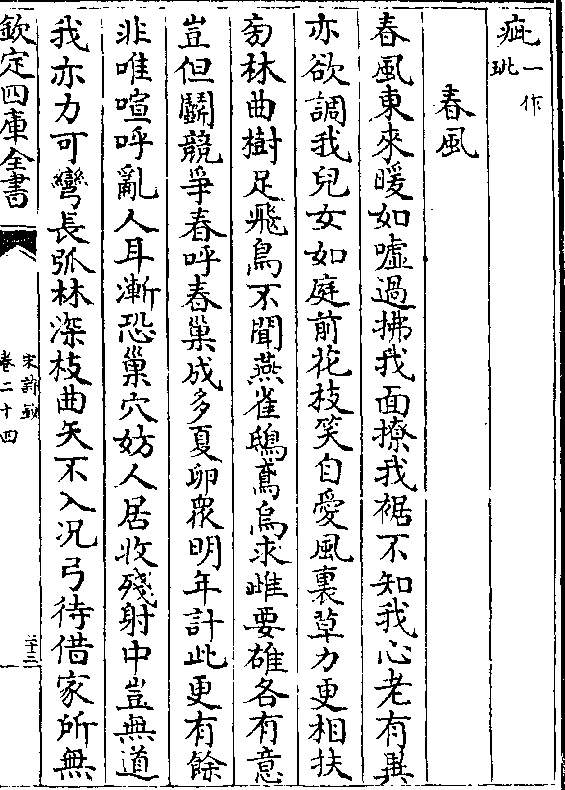 疵一作玭
春風
春風東來暖如噓過拂我面撩我裾不知我心老有異
亦欲調我兒女如庭前花枝笑自愛風裏草力更相扶
芳林曲樹足飛鳥不聞燕雀鴟鳶烏求雌要雄各有意
豈但鬭競爭春呼春巢成多夏卵衆明年計此更有餘
非唯喧呼亂人耳漸恐巢穴妨人居收殘射中豈無道
我亦力可彎長弧林深枝曲矢不入况弓待借家所無
欽定四庫全書
宋詩鈔
卷二十四
二十三